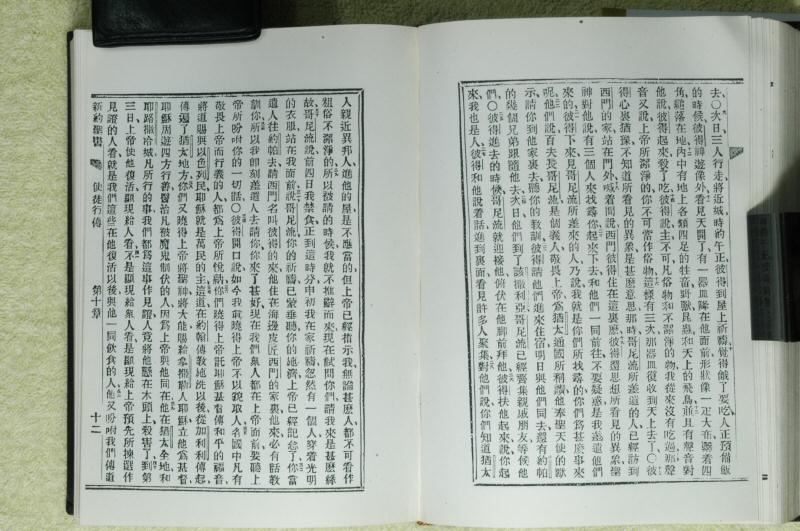 去○次日三人行走將近城時約午正彼得到屋上祈禱覺得餓了要吃人正預備飯
的時候彼得神遊像外看見天開了有一器皿降在他面前形狀像一疋大布繫着四
角縋落在地內中有地上各類四足的牲畜野獸昆蟲和天上的飛鳥並且有聲音對
他說彼得起來殺了吃彼得說主不可凡俗物和不潔淨的物我從來沒有吃過那聲
音又說上帝所潔淨的你不可當作俗物這樣有三次那器皿復收到天上去了○彼
得心裏猶豫不知道所看見的異象是甚麼意思那時哥尼流所差遣的人已經訪到
西門的家站在門外喊着問說西門彼得住在這裏麼彼得還思想所看見的異象聖
神對他說有三個人來找尋你起來下去和他們一同前往不要疑惑是我差遣他們
來的彼得下來見哥尼流所差來的人乃說我就是你們所找尋的你們為甚麼事來
呢他們說百夫長哥尼流是個義人敬畏上帝為猶太通國所稱讚他奉聖天使的默
示請你到他家裏去聽你的教訓彼得請他們進來住宿明日與他們同去還有約帕
的幾個兄弟跟隨他去次日他們到了該撒利亞哥尼流已經齊集親戚朋友等候他
們○彼得進去的時候哥尼流迎接俯伏在他脚前拜他彼得扶他起來說你起
來我也是人彼得和他說着話進到裏面看見許多人聚集對他們說你們知道猶太
人親近異邦人進他的屋是不應當的但上帝已經指示我無論甚麼人都不可看作
粗俗不潔淨的所以被請的時候我就不推辭而來現在試問你們請我來是甚麼緣
故哥尼流說前四日我禁食正到這時分申初我在家祈禱忽然有一個人穿着光明
的衣服站在我面前說哥尼流你的祈禱已蒙垂聽你的施濟上帝已經記念了你當
遣人往約帕去請西門名叫彼得的來他住在海邊皮匠西門的家裏他來必有話教
訓你所以我即刻差遣人去請你你來了甚好現在我們衆人都在上帝面前要聽上
帝所吩咐你的一切話○彼得開口說如今我真曉得上帝不以貌取人各國中凡有
敬畏上帝而行義的人都為上帝所悅納你們曉得上帝託耶穌基督傳和平的福音
將道賜與以色列民耶穌就是萬民的主這道在約翰傳教施洗以後從加利利傳起
傳遍了猶太地方你們又曉得上帝將聖神將大能賜給拿撒勒人耶穌立他為基督
耶穌周遊四方行善醫治凡被魔鬼制伏的人因為上帝與他同在他在猶太全地和
耶路撒冷城凡所行的事我們都為這事作見證人竟將他懸在木頭上殺害了到第
三日上帝使他復活顯現給人看不是顯現給衆人看是顯現給上帝預先所揀選作
見證的人看就是我們這些在他復活以後與他一同飲食的人他又吩咐我們傳道
新約聖書 使徒行傳 第十章 十二